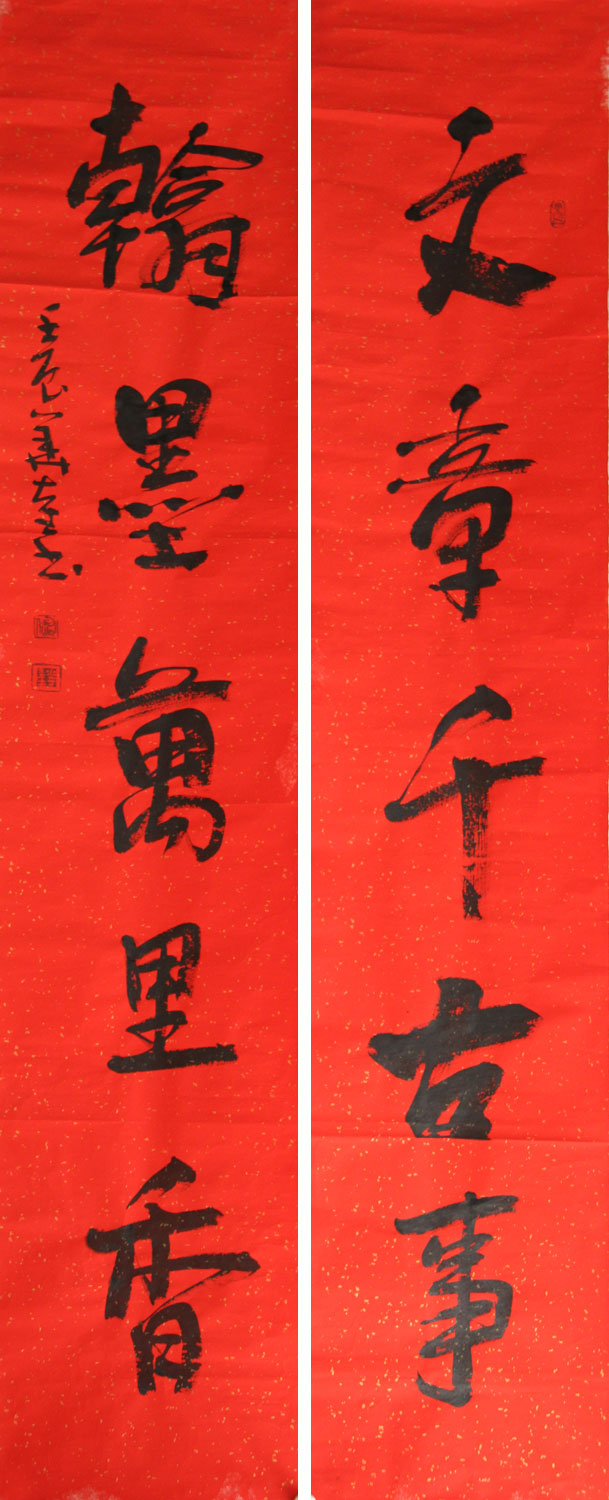 文章千古事
翰墨萬里香
壬辰